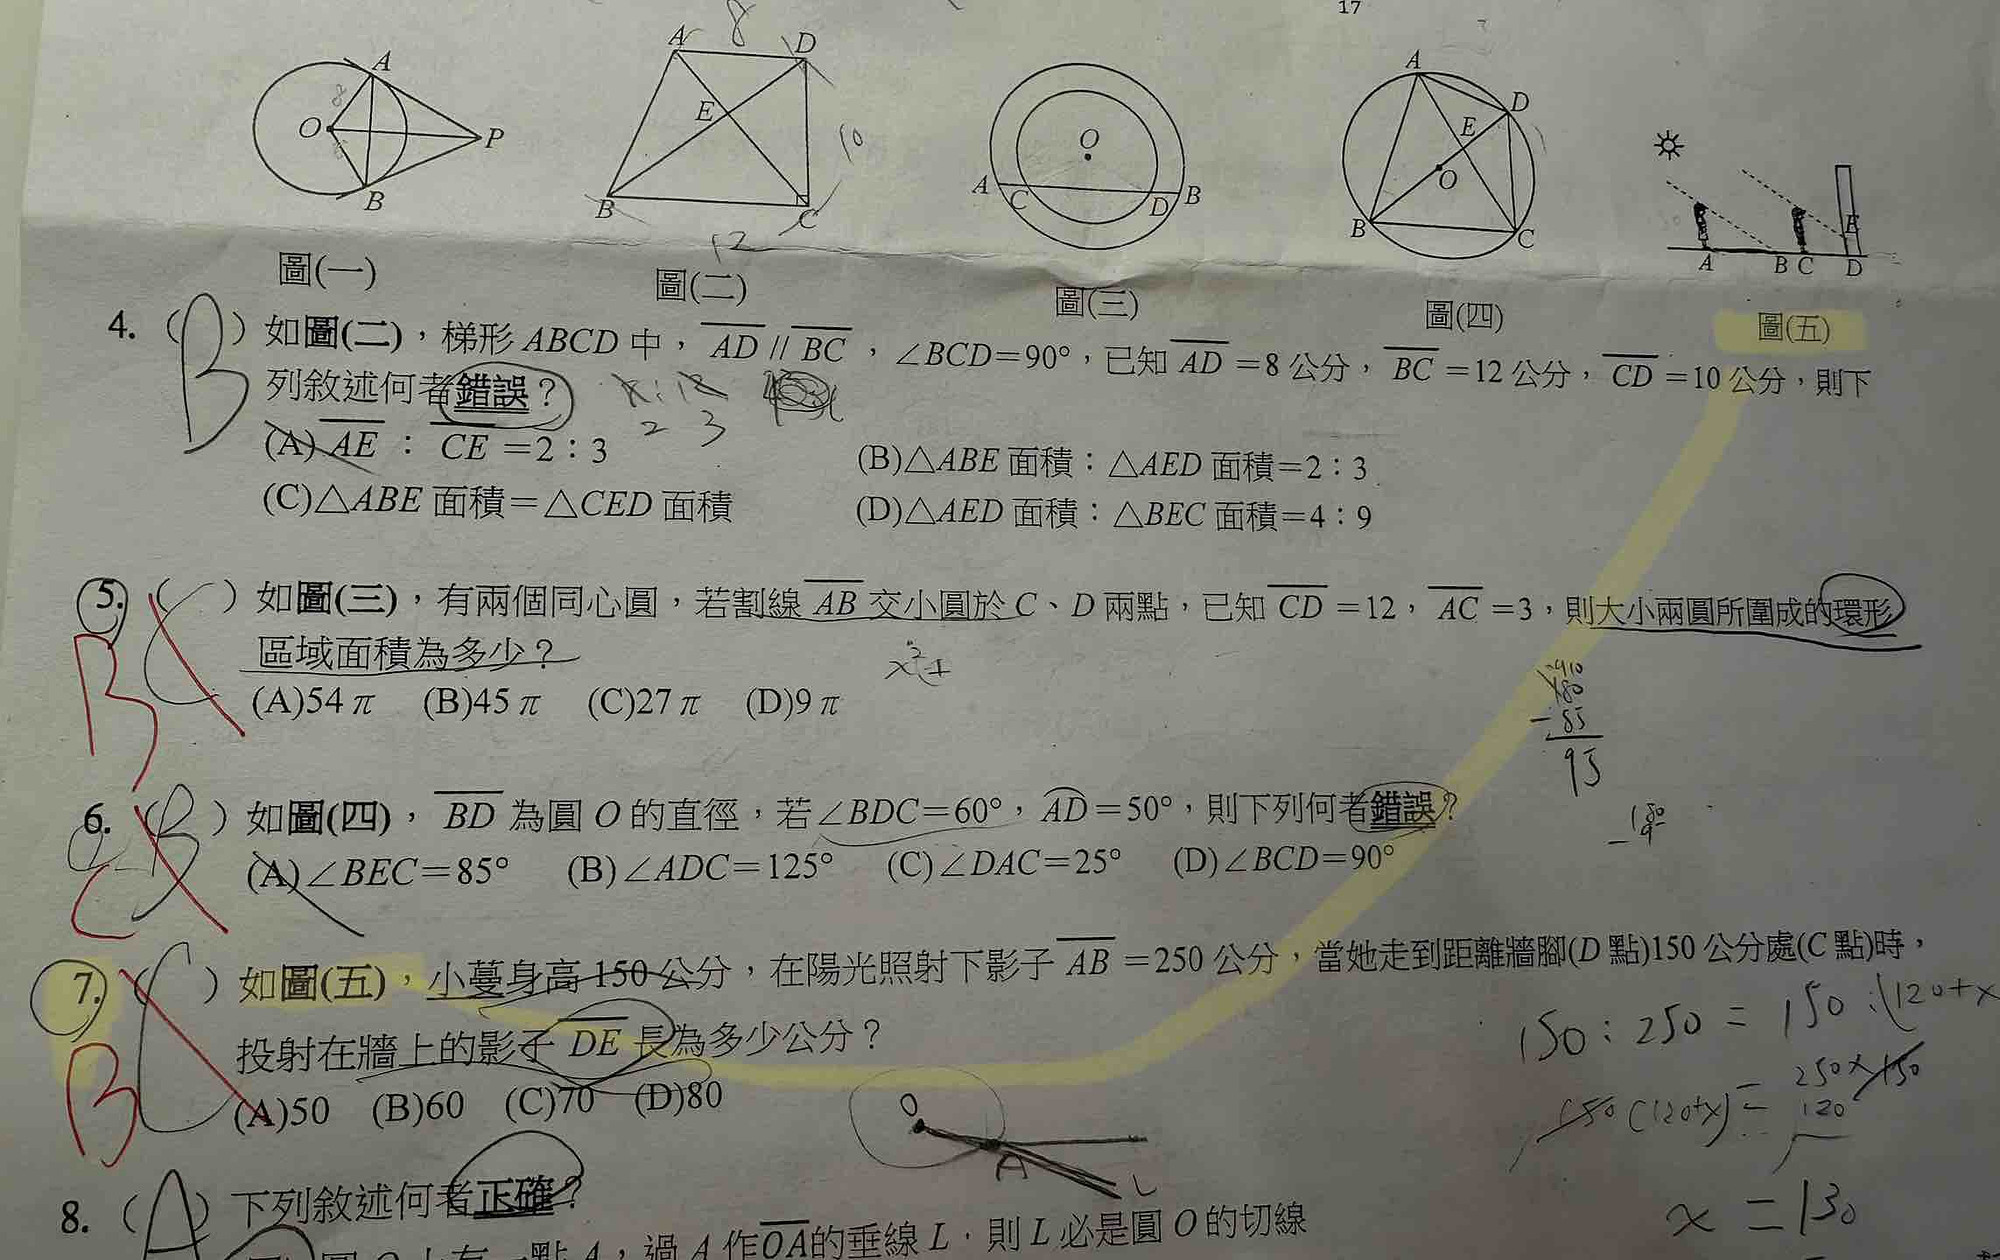 17
8
A D
E
10
B C
12
A
8
O P
B
O
A C D B
A
D
E
O
B C
E
A B C D
圖(一) 圖(二) 圖(三) 圖(四) 圖(五)
4. (B) 如圖(二),梯形 ABCD 中, AD // BC ,∠BCD=90°,已知 AD =8 公分, BC =12 公分, CD =10 公分,則下
列敘述何者錯誤?
2 3
(A) AE : CE =2:3 (B)△ABE 面積:△AED 面積=2:3
(C)△ABE 面積=△CED 面積 (D)△AED 面積:△BEC 面積=4:9
5. (C) 如圖(三),有兩個同心圓,若割線 AB 交小圓於 C、D 兩點,已知 CD =12, AC =3,則大小兩圓所圍成的環形
B 區域面積為多少?
(A)54π (B)45π (C)27π (D)9π
180
-85
95
6. (B) 如圖(四), BD 為圓 O 的直徑,若∠BDC=60°,AD=50°,則下列何者錯誤?
C (A)∠BEC=85° (B)∠ADC=125° (C)∠DAC=25° (D)∠BCD=90°
7. (C) 如圖(五),小蔓身高 150 公分,在陽光照射下影子 AB =250 公分,當她走到距離牆腳(D 點)150 公分處(C 點)時,
投射在牆上的影子 DE 長為多少公分?
B (A)50 (B)60 (C)70 (D)80
150:250=150:(120+x
150(120+x)=
120
x=130
O
A L
8. (A) 下列敘述何者正確?
點 A,過 A 作OA的垂線 L,則 L 必是圓 O 的切線